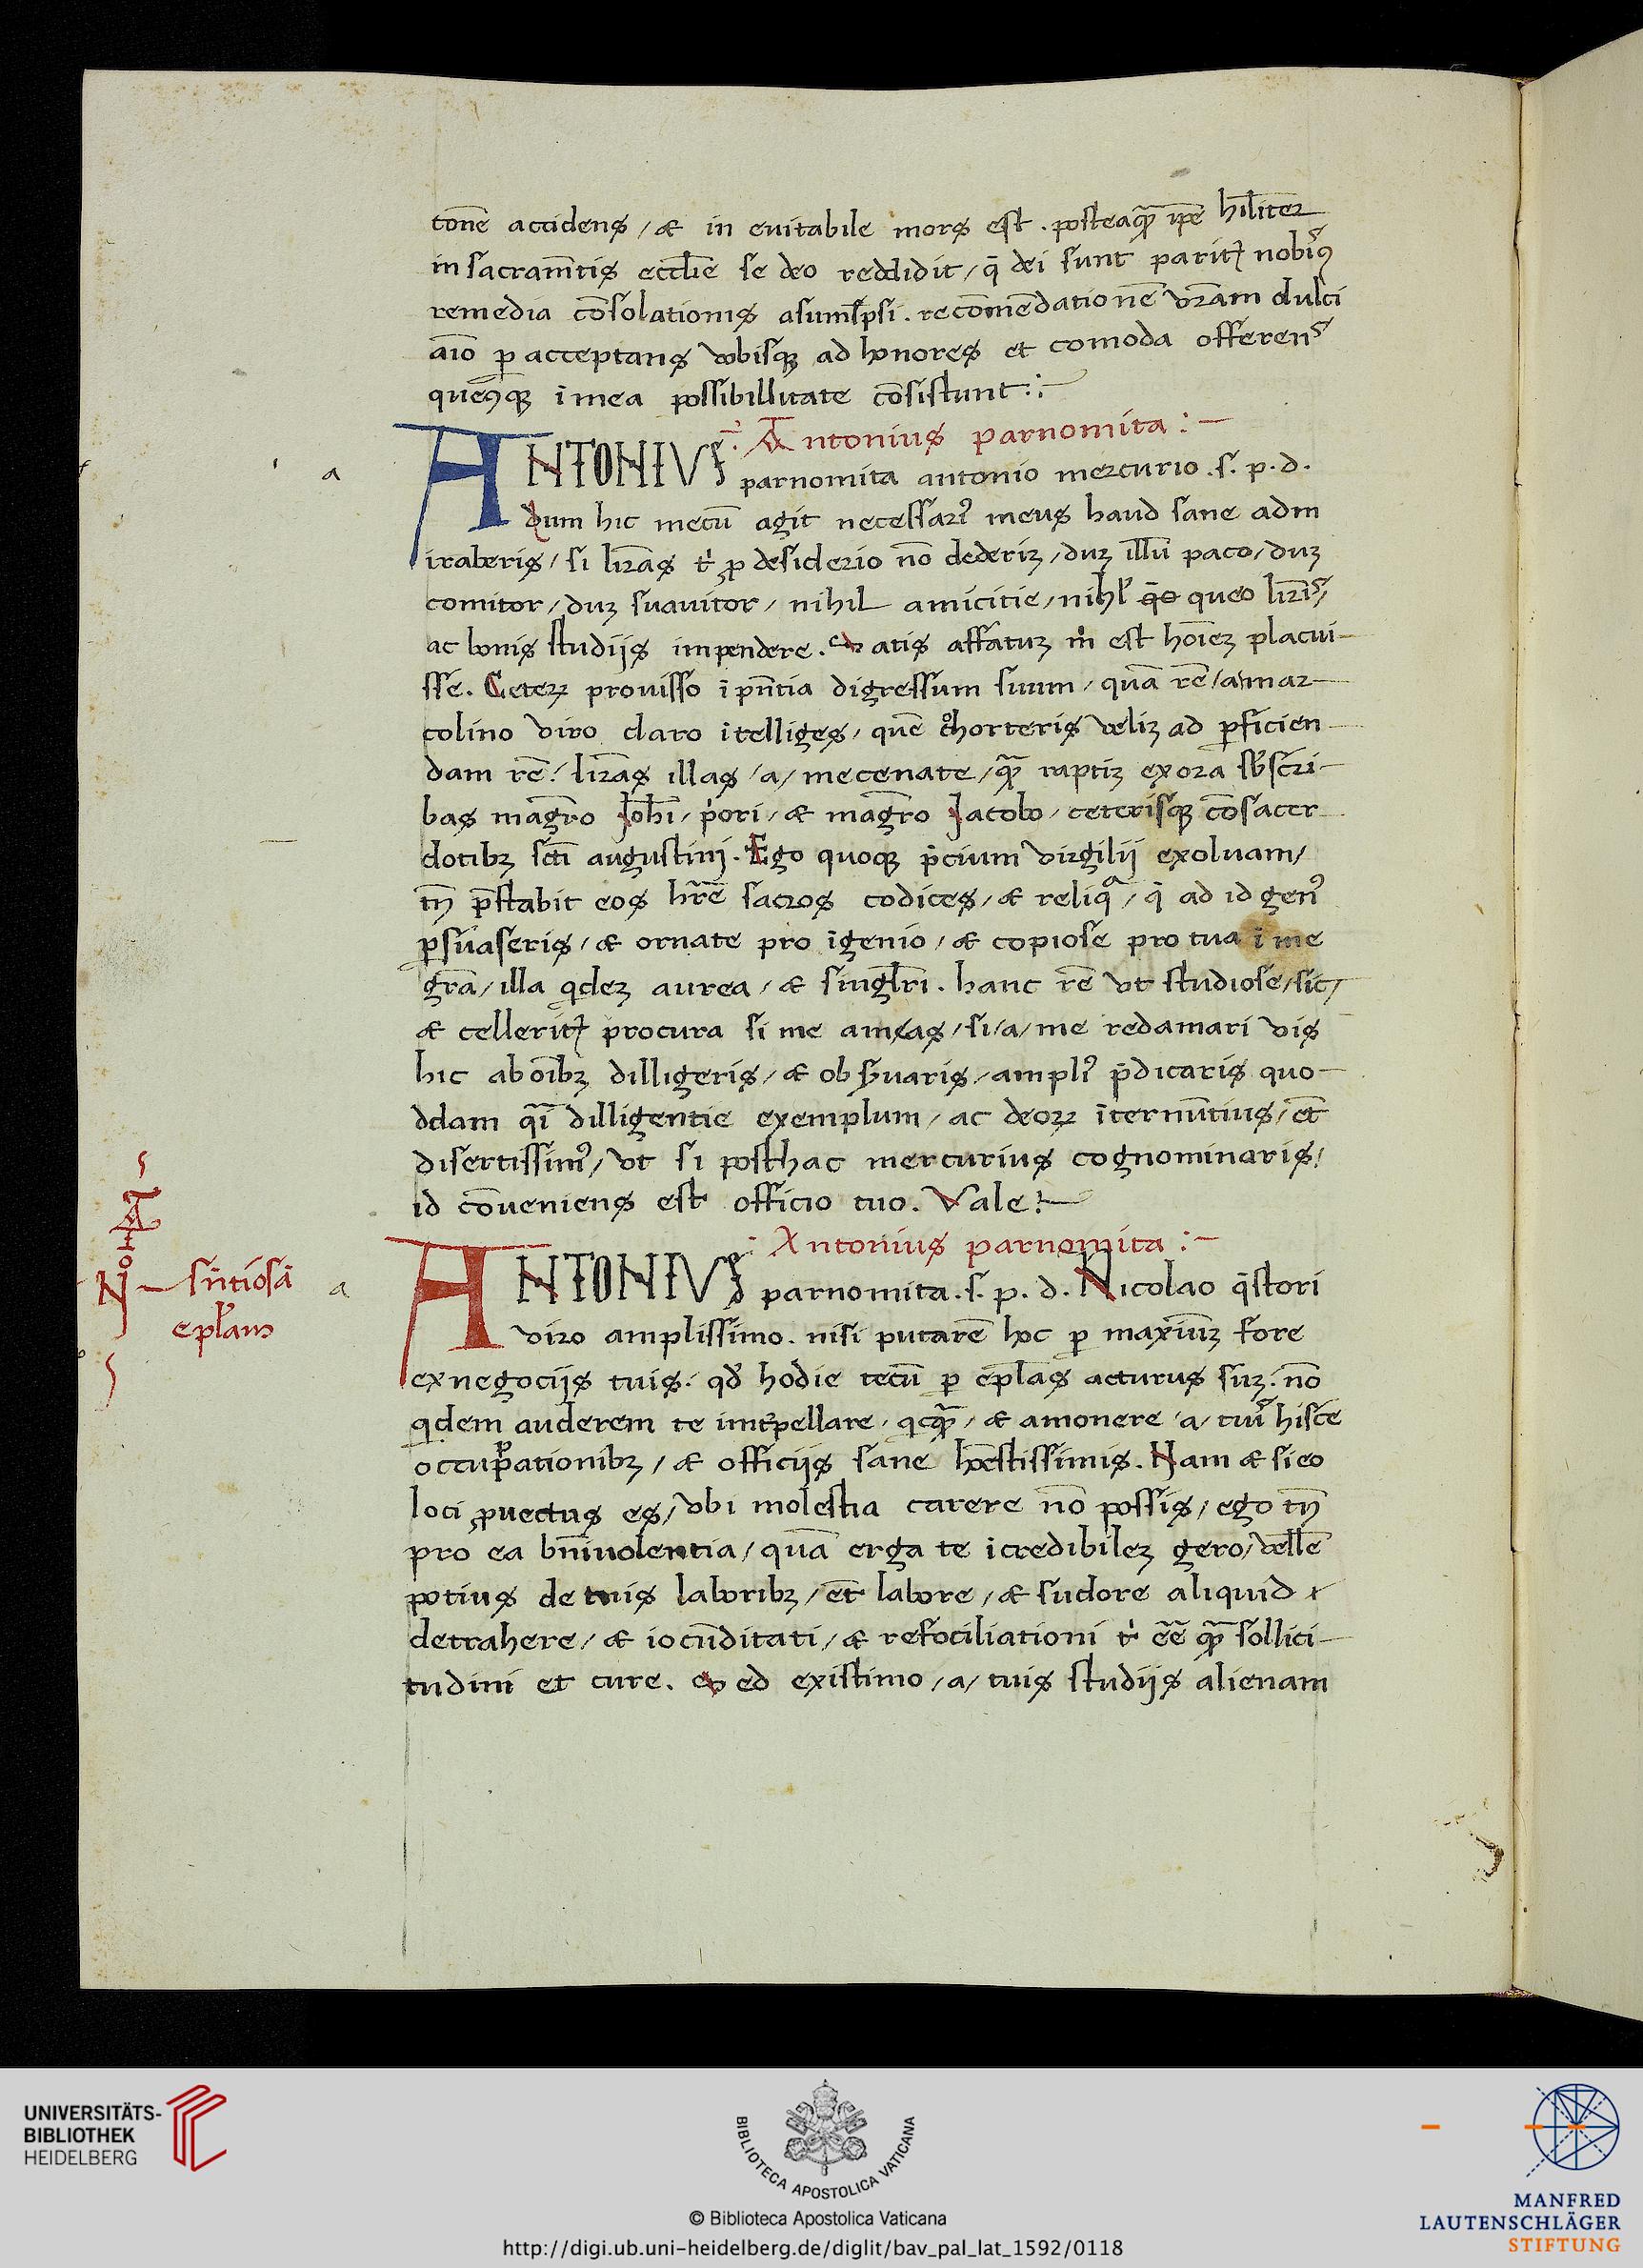 tonē accidens / & in euitabile mors est . posteaqꝫ ip̄e hūiliter
in sacram̄tis eccl̄ie se deo reddidit / q̄ dei sunt parit᷑ nobis⁹
remedia cōsolationis asumpsi . recōmēdationē vr̄am dulci
aīo ꝑ acceptans vobisqꝫ ad honores et comoda offerens
queq̄qꝫ ī mea possibillitate cōsistunt :
: Antonius parnomita : —
ANTONIVS parnomita antonio mercurio . s . p . d .
dum hic mecū agit necessari⁹ meus haud sane adm
iraberis / si lr̄as t᷑ ꝓ desiderio nō dederiꝫ / duꝫ illū paco / duꝫ
comitor / duꝫ suauitor / nihil amicitie / nihl̄ queo lr̄is /
ac bonis studijs impendere . Satis affatuꝫ m̄ est hoīeꝫ placui-
sse . Ceteꝝ prouisso ī pn̄tia digressum suum / quā rē / a / mar-
colino viro claro ītelliges / quē cohorteris veliꝫ ad ꝑficien-
dam rē / lr̄as illas / a / mecenate / qꝫ raptiꝫ exora sb̄scri-
bas mag̃ro Ioh̄i / p̄ori / & mag̃ro Iacobo / ceterisqꝫ cōsacer
dotibꝫ sc̄ti augustini . Ego quoqꝫ p̄cium virgilij exoluam /
tn̄ p̄stabit eos hr̄e sacros codices / & reliqa / q̄ ad id gen⁹
ꝑsuaseris / & ornate pro īgenio / & copiose pro tua ī me
gr̄a / illa qdeꝫ aurea / & singl̄ri . hanc rē vt studiose / sic /
& cellerit᷑ procura si me amas / si / a / me redamari vis
hic ab oībꝫ dilligeris / & obs̄uaris / ampli⁹ p̄dicaris quo-
ddam qī dilligentie exemplum / ac deoꝝ īternūtius / et̄
disertissim⁹ / vt si posthac mercurius cognominaris /
id cōueniens est officio tuo . Vale :
: Antonius parnomita : —
ANTONIVS parnomita . s . p . d . Nicolao q̄stori
viro amplissimo . nisi putarē hoc ꝑ maximuꝫ fore
ex negocijs tuis . qd̄ hodie tecū ꝑ ep̄las acturus suꝫ . nō
qdem auderem te int̄pellare / qcqꝫ / & amonere / a / tuis hisce
occupationibꝫ / & officijs sane hōestissimis . Nam & si eo
loci ꝓuectus es / vbi molestia carere nō possis / ego tn̄
pro ea bn̄iuolentia / quā erga te īcredibileꝫ gero / vellē
potius de tuis laboribꝫ / et̄ labore / & sudore aliquid
detrahere / & iocūditati / & refociliationi t᷑ eē̄ qꝫ sollici-
tudini et cure . Sed existimo / a / tuis studijs alienam
a
a
sn̄tiosā
epl̄am
UNIVERSITÄTS-
BIBLIOTHEK
HEIDELBERG
BIBLIOTECA APOSTOLICA VATICANA
© Biblioteca Apostolica Vaticana
http://digi.ub.uni-heidelberg.de/diglit/bav_pal_lat_1592/0118
MANFRED
LAUTENSCHLÄGER
STIFTUNG